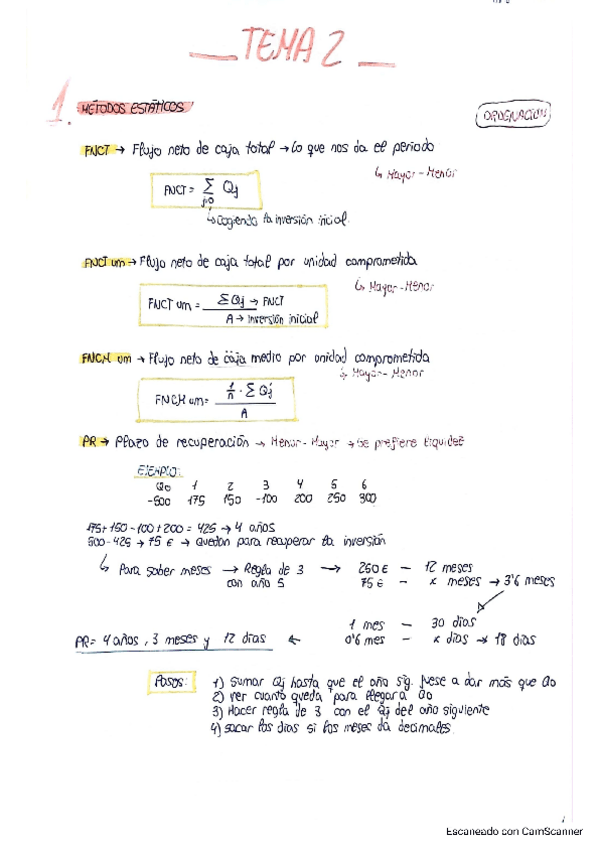 TEMA 2
1. MÉTODOS ESTÁTICOS
ORDENACIÓN
FNCT → Flujo neto de caja total → Lo que nos da el periodo
↳ Mayor - Menor
FNCT = Σ Qj
j=0
↳ Cogiendo la inversión inicial
FNCT um → Flujo neto de caja total por unidad comprometida
↳ Mayor - Menor
FNCT um = ΣQj → FNCT
A → Inversión inicial
FNCM um → Flujo neto de caja medio por unidad comprometida
↳ Mayor - Menor
FNCM um = 1/n · Σ Qj
A
PR → Plazo de recuperación → Menor - Mayor → Se prefiere liquidez
EJEMPLO:
Qo 1 2 3 4 5 6
-500 175 150 -100 200 250 300
175+150-100+200 = 425 → 4 años
500-425 → 75 € → Quedan para recuperar la inversión
↳ Para saber meses → Regla de 3 → 250€ — 12 meses
con año 5 75€ — x meses → 3'6 meses
1 mes — 30 días
PR = 4 años, 3 meses y 12 dias ← 0'6 mes — x días → 18 días
Pasos: 1) Sumar Qj hasta que el año sig. fuese a dar más que Qo
2) Ver cuanto queda para llegar a Qo
3) Hacer regla de 3 con el Qj del año siguiente
4) Sacar los dias si los meses da decimales
Escaneado con CamScanner